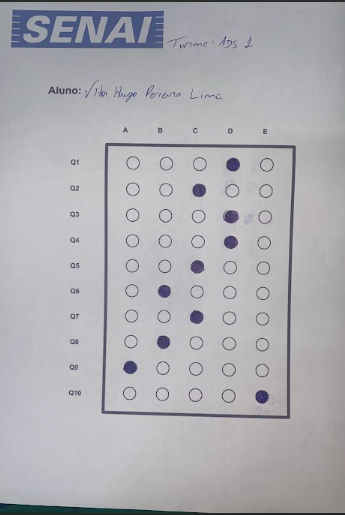 SENAI
Turma: ADS 1
Aluno: Vitor Hugo Pereira Lima
A B C D E
Q1
Q2
Q3
Q4
Q5
Q6
Q7
Q8
Q9
Q10